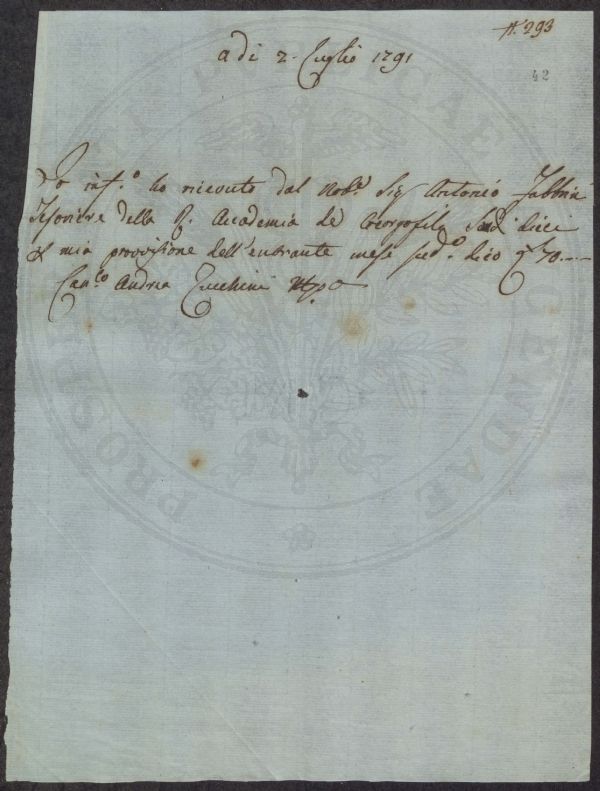 N.° 293
a di 2. Luglio 1791
42
Io inf.° ho ricevuto dal Nob.e Sig Antonio Fabbrini
Tesoriere della R. Accademia de Georgofili Scudi dieci
p mia provvisione dell'entrante mese sud.° dico 70.---
Can.co Andrea Zucchini Mp.a
PROSPERITATI PUBLICAE AUGENDAE